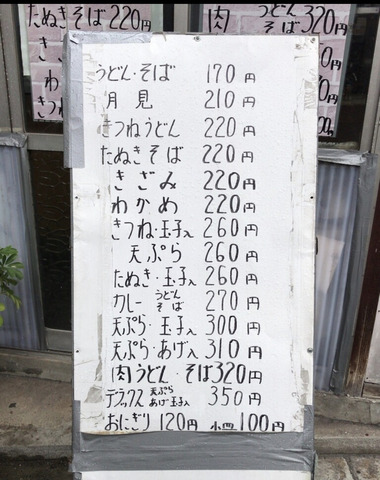 たぬきそば220円
肉 うどん そば320円
うどん・そば 170円
月見 210円
きつねうどん 220円
たぬきそば 220円
きざみ 220円
わかめ 220円
きつね・玉子入 260円
天ぷら 260円
たぬき・玉子入 260円
カレー うどん そば 270円
天ぷら・玉子入 300円
天ぷら・あげ入 310円
肉うどん・そば320円
デラックス 天ぷら あげ玉子入 350円
おにぎり 120円 小皿100円